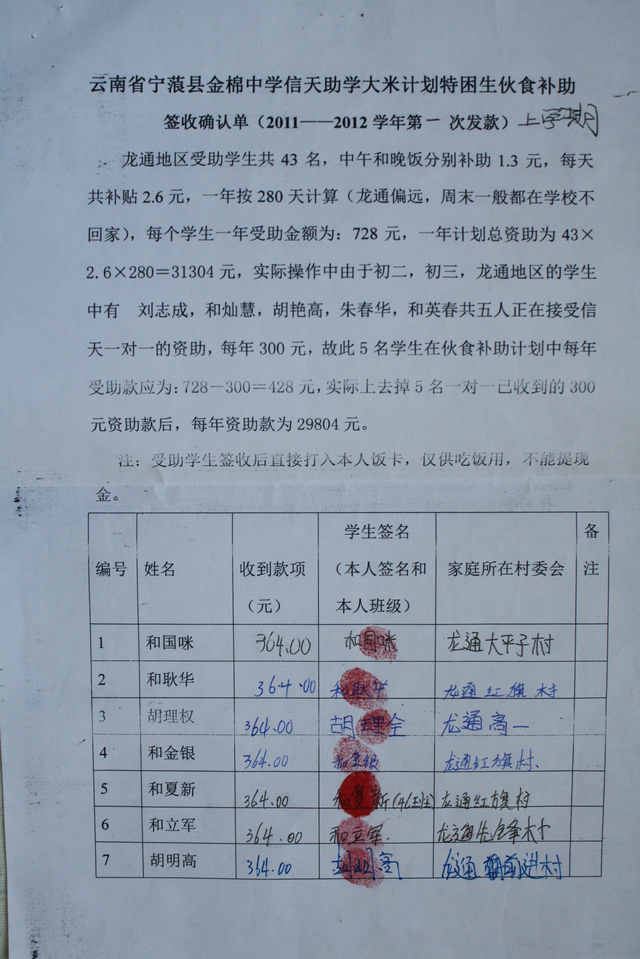 云南省宁蒗县金棉中学信天助学大米计划特困生伙食补助
签收确认单（2011——2012 学年第一 次发款）上学期
龙通地区受助学生共 43 名，中午和晚饭分别补助 1.3 元，每天
共补贴 2.6 元，一年按 280 天计算（龙通偏远，周末一般都在学校不
回家），每个学生一年受助金额为：728 元，一年计划总资助为 43×
2.6×280＝31304 元，实际操作中由于初二，初三，龙通地区的学生
中有 刘志成，和灿慧，胡艳高，朱春华，和英春共五人正在接受信
天一对一的资助，每年 300 元，故此 5 名学生在伙食补助计划中每年
受助款应为：728－300＝428 元，实际上去掉 5 名一对一已收到的 300
元资助款后，每年资助款为 29804 元。
注：受助学生签收后直接打入本人饭卡，仅供吃饭用，不能提现
金。
编号 姓名 收到款项（元） 学生签名（本人签名和本人班级） 家庭所在村委会 备注
1 和国咪 364.00 和国咪 龙通大平子村
2 和耿华 364.00 和耿华 龙通红旗村
3 胡理权 364.00 胡理全 龙通高一
4 和金银 364.00 和金银 龙通红旗村、
5 和夏新 364.00 和夏新(46班) 龙通红旗村
6 和立军 364.00 和立军. 龙通先锋村
7 胡明高 364.00 胡明高 龙通前进村